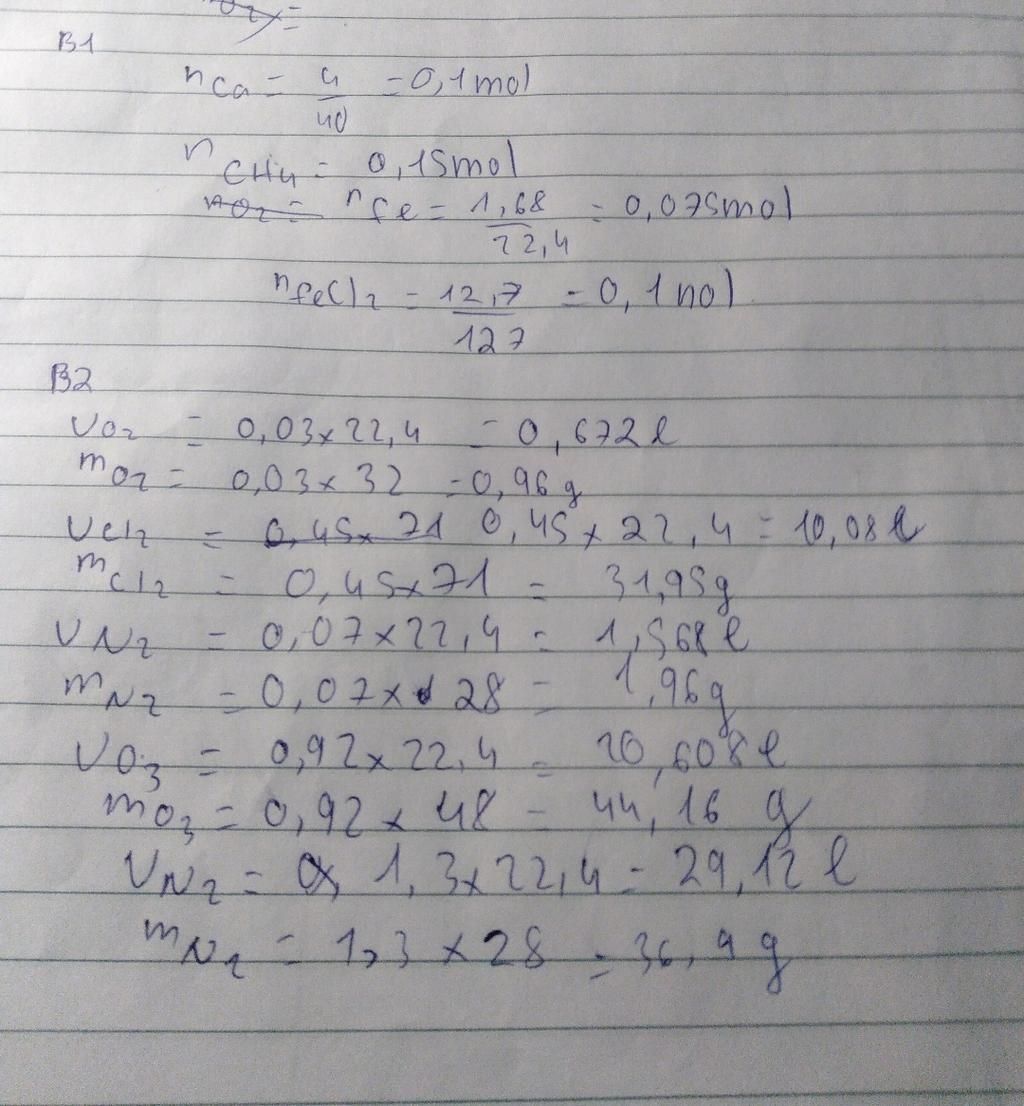 O2 =
B1
nCa = 4/40 = 0,1mol
nCH4 = 0,15mol
nO2 = nfe = 1,68/22,4 = 0,075mol
nfeCl2 = 12,7/127 = 0,1nol
B2
VO2 = 0,03x22,4 = 0,672l
mO2 = 0,03x 32 = 0,96g
VCl2 = 0,45x 71 0,45x 22,4 = 10,08l
mCl2 = 0,45x71 = 31,95g
VN2 = 0,07x22,4 = 1,568l
mN2 = 0,07x 28 = 1,96g
VO3 = 0,92x22,4 = 20,608l
mO3 = 0,92x 48 = 44,16 g
VN2 = 1,3x22,4 = 29,12l
mN2 = 1,3 x 28 = 36,9 g